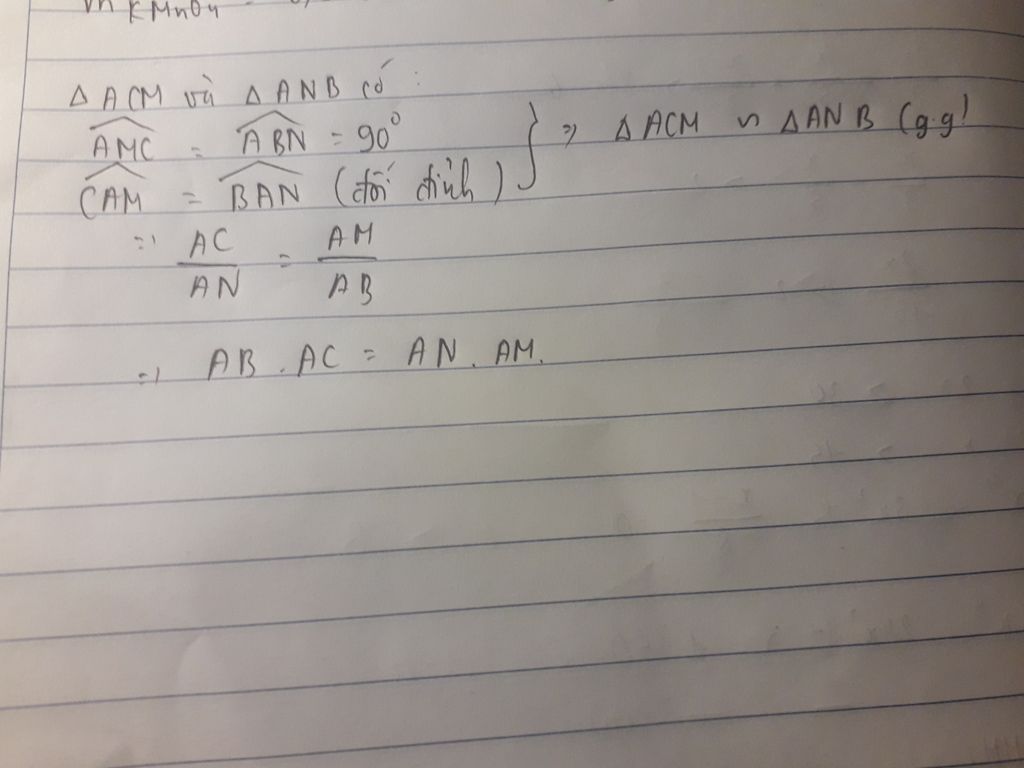 KMnO4
Δ ACM và Δ ANB có :
AMC = ABN = 90°
CAM = BAN (đối đỉnh) } => Δ ACM ∽ Δ ANB (g.g)
=> AC/AN = AM/AB
=> AB . AC = AN . AM.